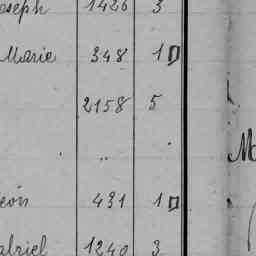 oseph 1426 3
Marie 348 1
2158 5
"
eon 431 1
abriel 1240 3
M